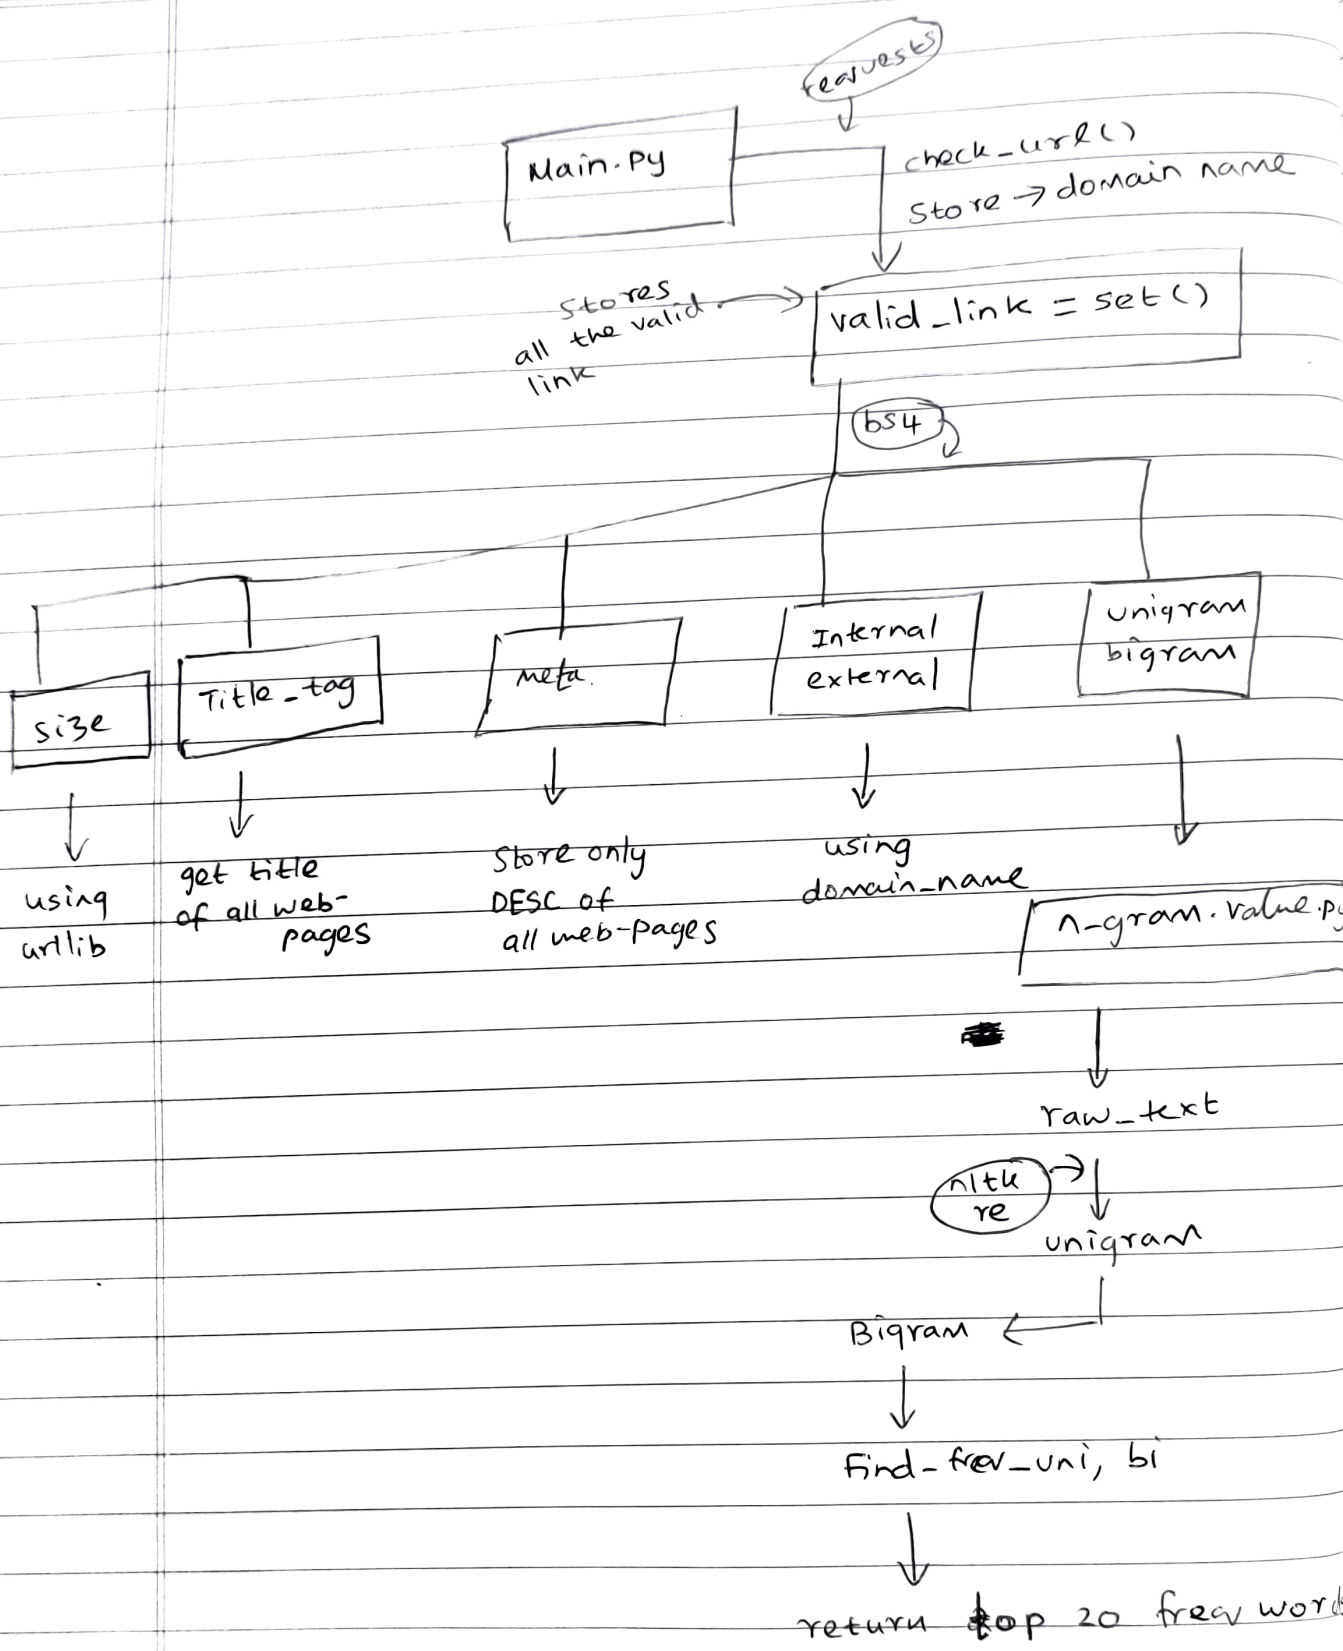 requests
Main.py
check_url()
Store → domain name
Stores
all the valid
link
valid_link = set()
bs4
size
Title_tag
meta.
Internal
external
unigram
bigram
using
urllib
get title
of all web-
pages
Store only
DESC of
all web-pages
using
domain_name
n-gram.value.py
raw_text
nltk
re
unigram
Bigram
Find-freq_uni, bi
return top 20 freq word